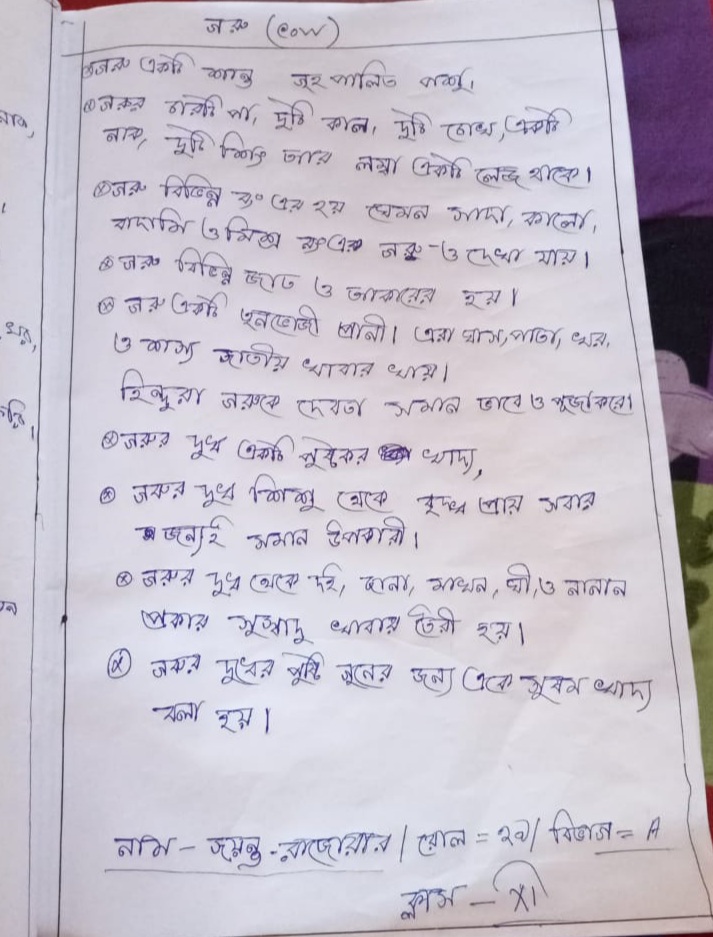 গরু (cow)
গরু একটি শান্ত গৃহ পালিত পশু।
গরুর চারটি পা, দুটি কান, দুটি চোখ, একটি
নাক, দুটি শিং আর লম্বা একটি লেজ থাকে।
গরু বিভিন্ন রং এর হয় যেমন সাদা, কালো,
বাদামি ও মিশ্র রং এর গরু-ও দেখা যায়।
গরু বিভিন্ন জাত ও আকারের হয়।
গরু একটি তৃনভোজী প্রানী। এরা ঘাস, পাতা, খর,
ও শস্য জাতীয় খাবার খায়।
হিন্দুরা গরুকে দেবতা সমান ভাবে ও পূজা করে।
গরুর দুধ একটি পুষ্টকর খাদ্য,
গরুর দুধ শিশু থেকে বৃদ্ধ প্রায় সবার
জন্যই সমান উপকারী।
গরুর দুধ থেকে দই, ছানা, মাখন, ঘী, ও নানান
প্রকার সুস্বাদু খাবার তৈরী হয়।
গরুর দুধের পুষ্টি গুনের জন্য একে সুষম খাদ্য
বলা হয়।
নাম - জয়ন্ত রাজোয়ার / রোল = ২৩/ বিভাগ = A
ক্লাস - XI